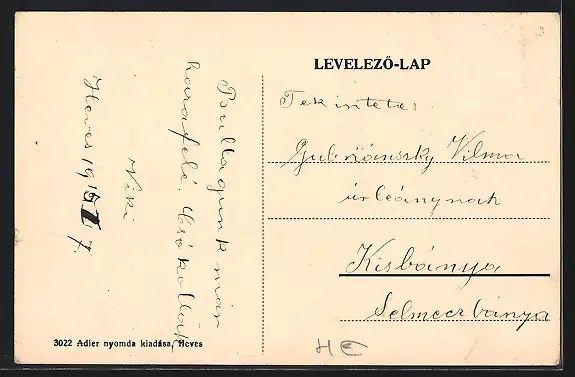 LEVELEZŐ-LAP
Tekintetes
Gubriánszky Vilma
úrleánynak
Kisbánya
Selmeczbánya
már
hazafelé. Csókollak
Niki
Heves 19
7.
3022 Adler nyomda kiadása, Heves
HE